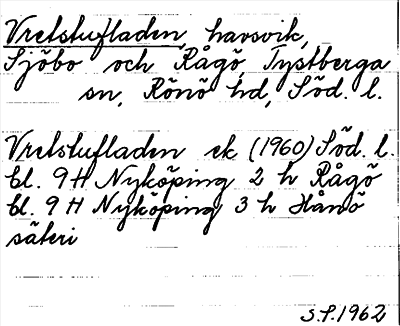 Vretstufladen, havsvik,
Sjöbo och Rågö, Tystberga
sn, Rönö hd, Söd. l.
Vretstufladen ek (1960) Söd. l.
bl. 9H Nyköping 2 h Rågö
bl. 9H Nyköping 3 h Hånö
säteri
S.S. 1962